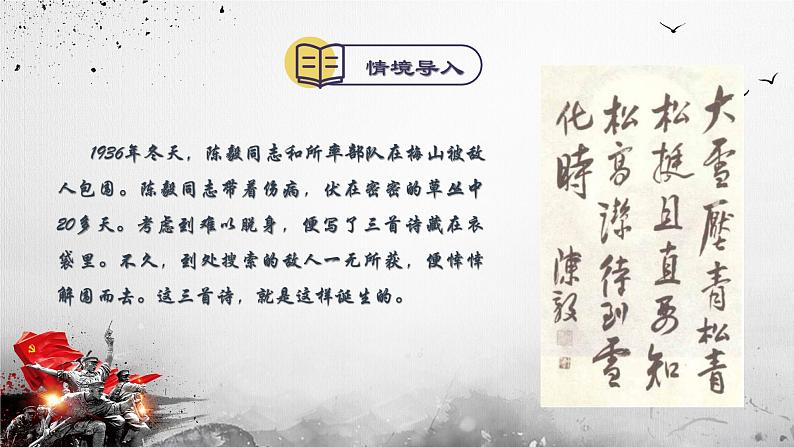 情境导入
1936年冬天，陈毅同志和所率部队在梅山被敌
人包围。陈毅同志带着伤病，伏在密密的草丛中
20多天。考虑到难以脱身，便写了三首诗藏在衣
袋里。不久，到处搜索的敌人一无所获，便悻悻
解围而去。这三首诗，就是这样诞生的。
大雪壓青松青
松挺且直要知
松高潔待到雪
化時 陳毅